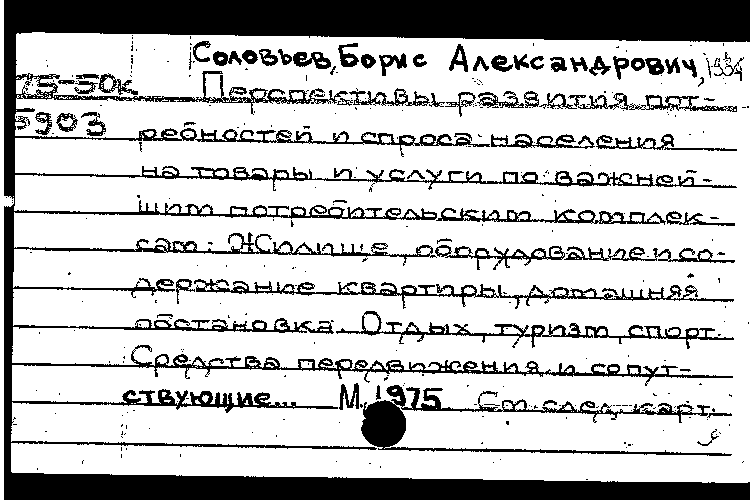 Соловьев, Борис Александрович, 1934
75-50к Перспективы развития пот-
5903 ребностей и спроса населения
на товары и услуги по важней-
шим потребительским комплек-
сам: Жилище, оборудование и со-
держание квартиры, домашняя
обстановка. Отдых, туризм, спорт.
Средства передвижения и сопут-
ствующие... М., 1975 См. след. карт.